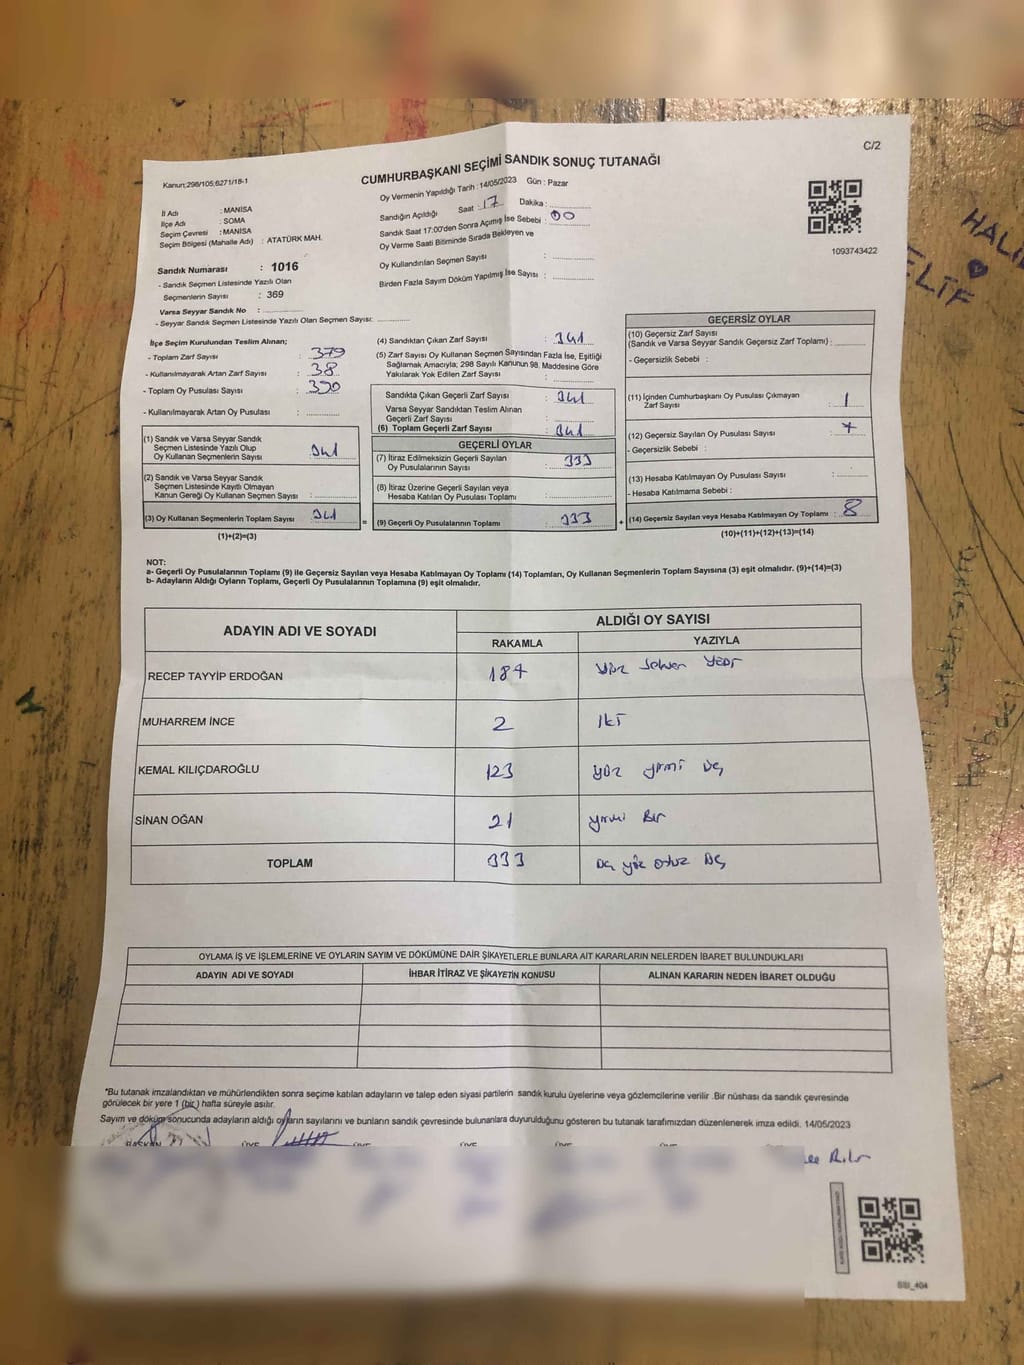 C/2
Kanun;298/105;6271/18-1
CUMHURBAŞKANI SEÇİMİ SANDIK SONUÇ TUTANAĞI
Oy Vermenin Yapıldığı Tarih : 14/05/2023 Gün : Pazar
Sandığın Açıldığı Saat : 17 Dakika : 00
Sandık Saat 17:00'den Sonra Açımış İse Sebebi :
Oy Verme Saati Bitiminde Sırada Bekleyen ve
Oy Kullandırılan Seçmen Sayısı :
Birden Fazla Sayım Döküm Yapılmış İse Sayısı :
1093743422
İl Adı : MANİSA
İlçe Adı : SOMA
Seçim Çevresi : MANİSA
Seçim Bölgesi (Mahalle Adı) : ATATÜRK MAH.
Sandık Numarası : 1016
- Sandık Seçmen Listesinde Yazılı Olan
Seçmenlerin Sayısı : 369
Varsa Seyyar Sandık No :
- Seyyar Sandık Seçmen Listesinde Yazılı Olan Seçmen Sayısı:
İlçe Seçim Kurulundan Teslim Alınan;
- Toplam Zarf Sayısı : 379
- Kullanılmayarak Artan Zarf Sayısı : 38
- Toplam Oy Pusulası Sayısı : 390
- Kullanılmayarak Artan Oy Pusulası :
(1) Sandık ve Varsa Seyyar Sandık
Seçmen Listesinde Yazılı Olup
Oy Kullanan Seçmenlerin Sayısı : 341
(2) Sandık ve Varsa Seyyar Sandık
Seçmen Listesinde Kayıtlı Olmayan
Kanun Gereği Oy Kullanan Seçmen Sayısı :
(3) Oy Kullanan Seçmenlerin Toplam Sayısı : 341
(1)+(2)=(3)
(4) Sandıktan Çıkan Zarf Sayısı : 341
(5) Zarf Sayısı Oy Kullanan Seçmen Sayısından Fazla İse, Eşitliği
Sağlamak Amacıyla; 298 Sayılı Kanunun 98. Maddesine Göre
Yakılarak Yok Edilen Zarf Sayısı :
Sandıkta Çıkan Geçerli Zarf Sayısı : 341
Varsa Seyyar Sandıktan Teslim Alınan
Geçerli Zarf Sayısı :
(6) Toplam Geçerli Zarf Sayısı : 341
GEÇERLİ OYLAR
(7) İtiraz Edilmeksizin Geçerli Sayılan
Oy Pusulalarının Sayısı : 333
(8) İtiraz Üzerine Geçerli Sayılan veya
Hesaba Katılan Oy Pusulası Toplamı :
= (9) Geçerli Oy Pusulalarının Toplamı : 333 +
GEÇERSİZ OYLAR
(10) Geçersiz Zarf Sayısı
(Sandık ve Varsa Seyyar Sandık Geçersiz Zarf Toplamı) :
- Geçersizlik Sebebi :
(11) İçinden Cumhurbaşkanı Oy Pusulası Çıkmayan
Zarf Sayısı : 1
(12) Geçersiz Sayılan Oy Pusulası Sayısı : 7
- Geçersizlik Sebebi :
(13) Hesaba Katılmayan Oy Pusulası Sayısı :
- Hesaba Katılmama Sebebi :
(14) Geçersiz Sayılan veya Hesaba Katılmayan Oy Toplamı : 8
(10)+(11)+(12)+(13)=(14)
NOT:
a- Geçerli Oy Pusulalarının Toplamı (9) ile Geçersiz Sayılan veya Hesaba Katılmayan Oy Toplamı (14) Toplamları, Oy Kullanan Seçmenlerin Toplam Sayısına (3) eşit olmalıdır. (9)+(14)=(3)
b- Adayların Aldığı Oyların Toplamı, Geçerli Oy Pusulalarının Toplamına (9) eşit olmalıdır.
ADAYIN ADI VE SOYADI ALDIĞI OY SAYISI
RAKAMLA YAZIYLA
RECEP TAYYİP ERDOĞAN 187 yüz seksen yedi
MUHARREM İNCE 2 İKİ
KEMAL KILIÇDAROĞLU 123 yüz yirmi üç
SİNAN OĞAN 21 yirmi Bir
TOPLAM 333 üç yüz otuz üç
OYLAMA İŞ VE İŞLEMLERİNE VE OYLARIN SAYIM VE DÖKÜMÜNE DAİR ŞİKAYETLERLE BUNLARA AİT KARARLARIN NELERDEN İBARET BULUNDUKLARI
ADAYIN ADI VE SOYADI İHBAR İTİRAZ VE ŞİKAYETİN KONUSU ALINAN KARARIN NEDEN İBARET OLDUĞU
*Bu tutanak imzalandıktan ve mühürlendikten sonra seçime katılan adayların ve talep eden siyasi partilerin sandık kurulu üyelerine veya gözlemcilerine verilir .Bir nüshası da sandık çevresinde
görülecek bir yere 1 (bir) hafta süreyle asılır.
Sayım ve döküm sonucunda adayların aldığı oyların sayılarını ve bunların sandık çevresinde bulunanlara duyurulduğunu gösteren bu tutanak tarafımızdan düzenlenerek imza edildi. 14/05/2023
BAŞKAN ÜYE ÜYE ÜYE ÜYE ÜYE
SSI_404
ELİF